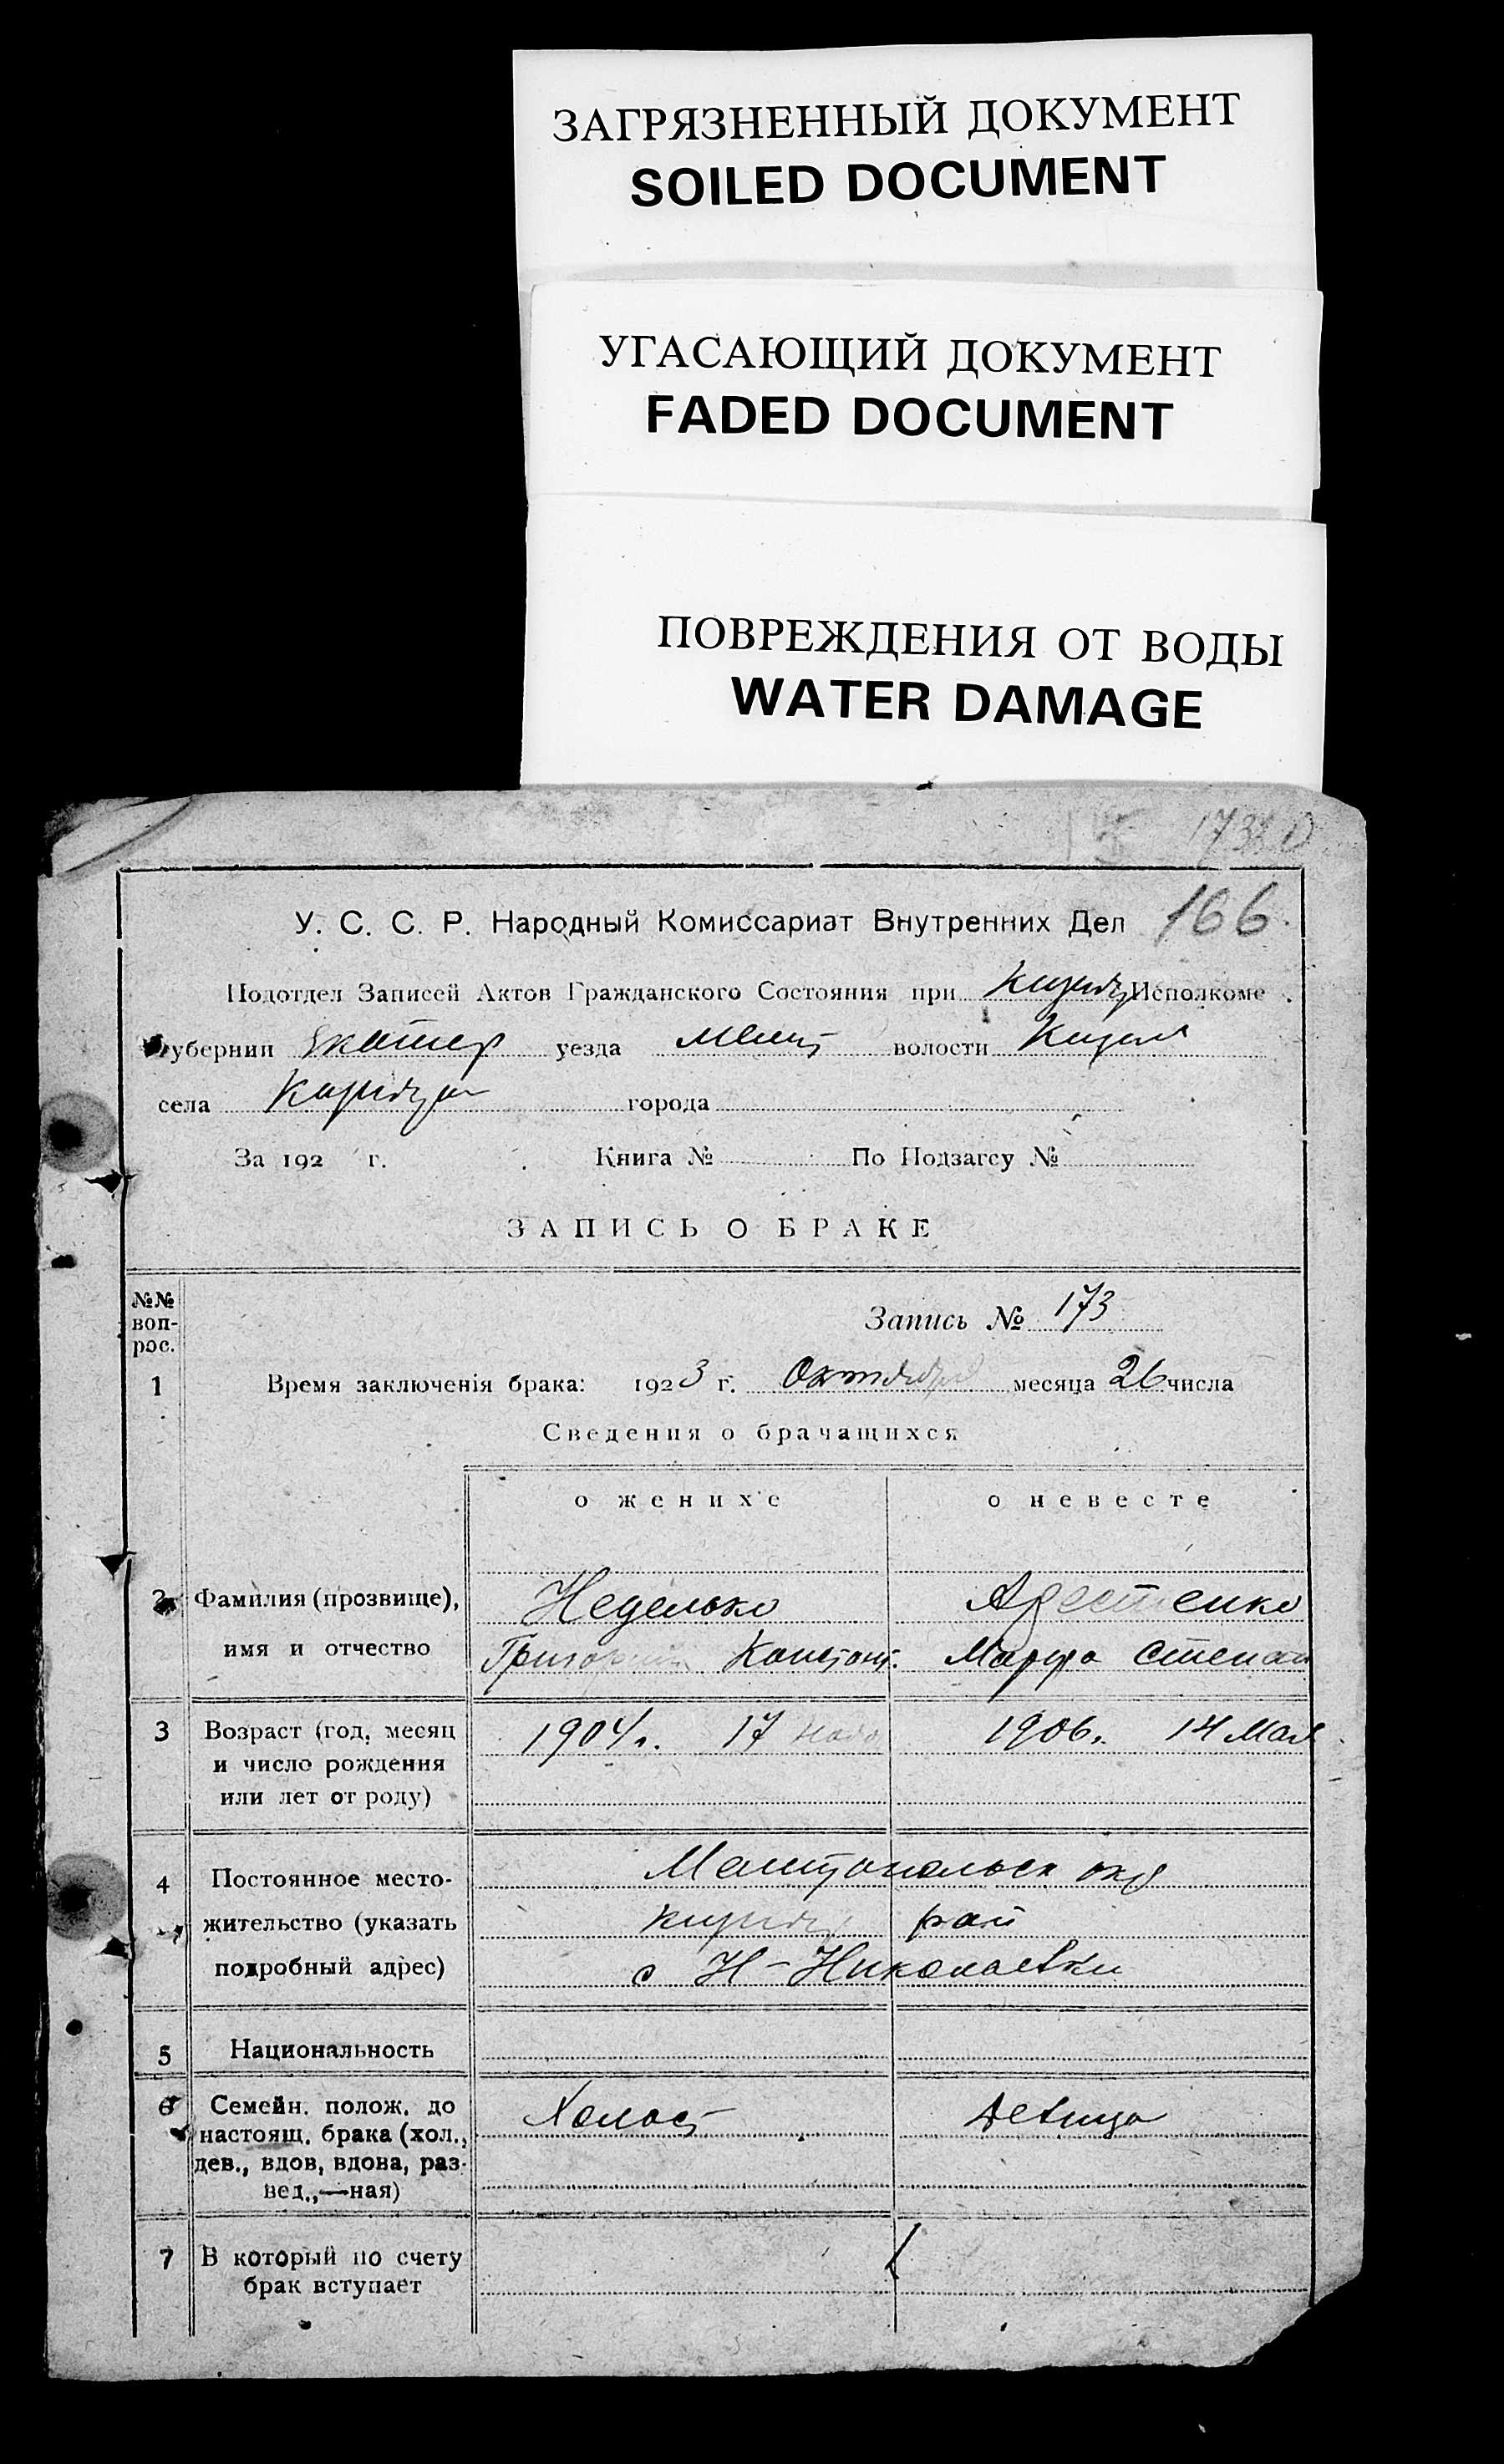 ЗАГРЯЗНЕННЫЙ ДОКУМЕНТ
SOILED DOCUMENT
УГАСАЮЩИЙ ДОКУМЕНТ
FADED DOCUMENT
ПОВРЕЖДЕНИЯ ОТ ВОДЫ
WATER DAMAGE
166.
У. С. С. Р. Народный Комиссариат Внутренних Дел
Подотдел Записей Актов Гражданского Состояния при Исполкоме
Губернии Екатер уезда Мелит волости
села города
За 192 г. Книга № По Подзагсу №
ЗАПИСЬ О БРАКЕ
№№ воп-рос.
Запись № 173
1 Время заключенія брака: 1923 г. Октября месяца 26 числа
Сведения о брачащихся
о женихе о невесте
2 Фамилия (прозвище), Неделько
имя и отчество Григорий Констант. Марфа Степан
3 Возраст (год, месяц 1904 г. 17 1906 г. 14 Мая
и число рождения
или лет от роду)
4 Постоянное место- Мелитопольск окр
жительство (указать рай
подробный адрес) с Н-Николаевки
5 Национальность
6 Семейн. полож. до Холост Девица
настоящ. брака (хол.,
дев., вдов, вдова, раз-
вед.,—ная)
7 В который по счету
брак вступает